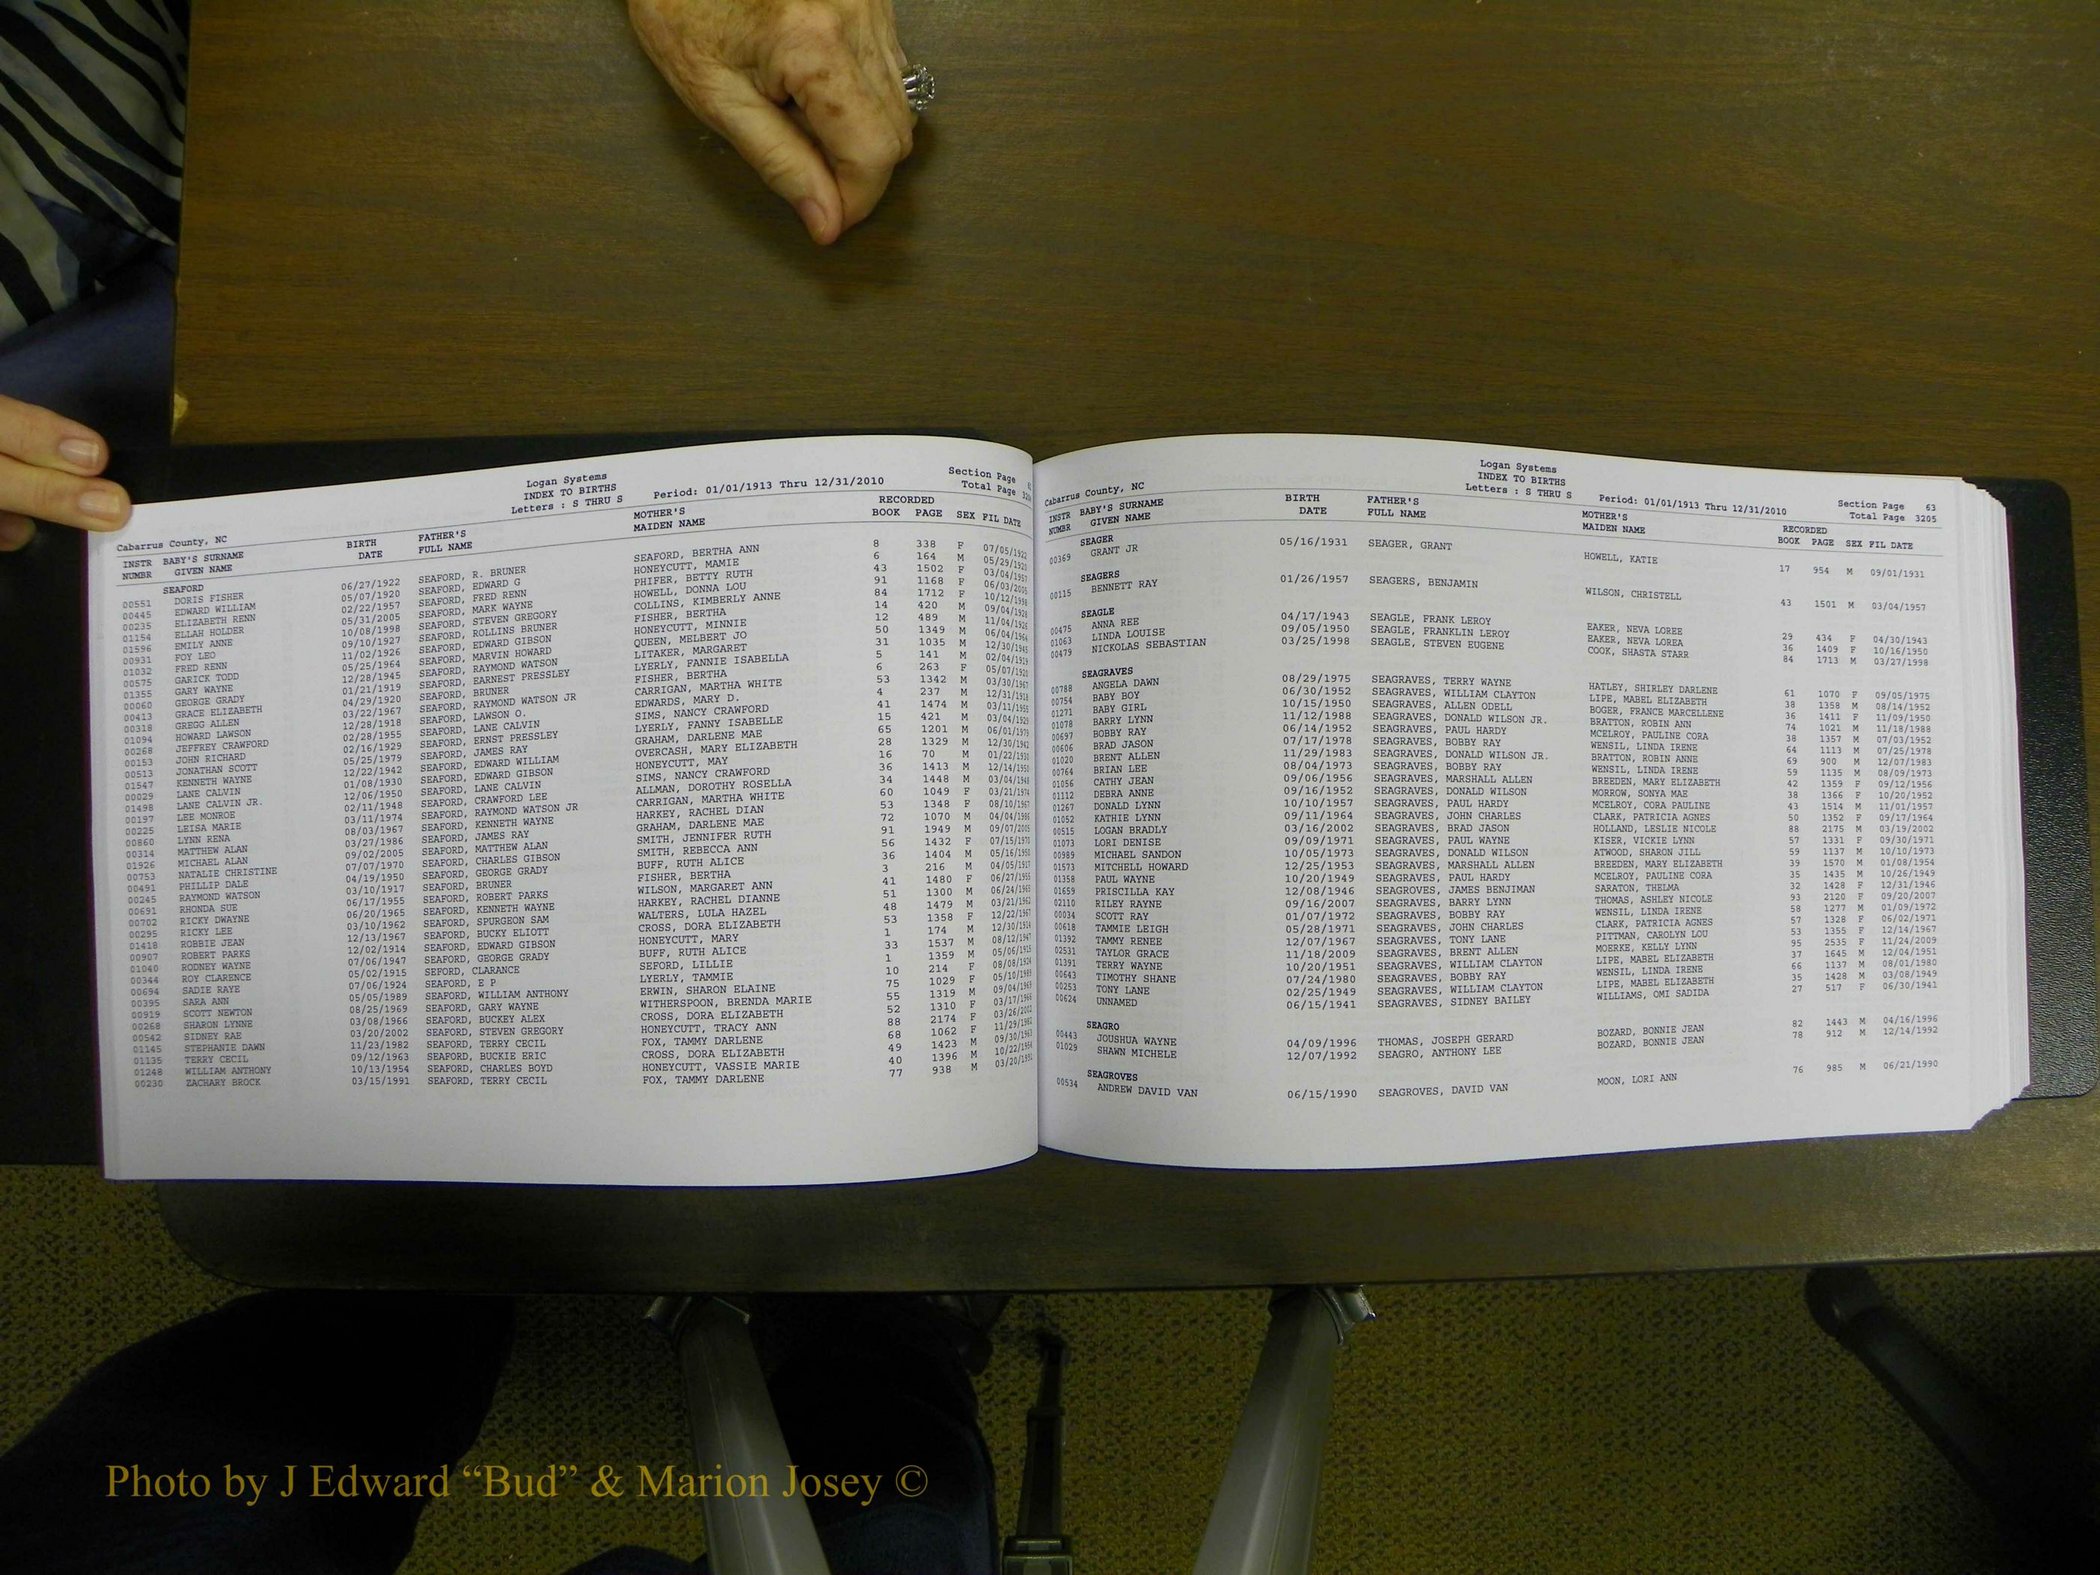 Logan Systems
INDEX TO BIRTHS
Letters : S THRU S Period: 01/01/1913 Thru 12/31/2010
Section Page
Total Page
Cabarrus County, NC
INSTR NUMBR BABY'S SURNAME GIVEN NAME BIRTH DATE FATHER'S FULL NAME MOTHER'S MAIDEN NAME RECORDED BOOK PAGE SEX FIL DATE
SEAFORD
00551 DORIS FISHER 06/27/1922 SEAFORD, R. BRUNER SEAFORD, BERTHA ANN 8 338 F 07/05/1922
00445 EDWARD WILLIAM 05/07/1920 SEAFORD, EDWARD G HONEYCUTT, MAMIE 6 164 M 05/29/1920
00235 ELIZABETH RENN 02/22/1957 SEAFORD, FRED RENN PHIFER, BETTY RUTH 43 1502 F 03/04/1957
01154 ELLAH HOLDER 05/31/2005 SEAFORD, MARK WAYNE HOWELL, DONNA LOU 91 1168 F 06/03/2005
01596 EMILY ANNE 10/08/1998 SEAFORD, STEVEN GREGORY COLLINS, KIMBERLY ANNE 84 1712 F 10/12/1998
00931 FOY LEO 09/10/1927 SEAFORD, ROLLINS BRUNER FISHER, BERTHA 14 420 M 09/04/1928
01032 FRED RENN 11/02/1926 SEAFORD, EDWARD GIBSON HONEYCUTT, MINNIE 12 489 M 11/04/1926
00575 GARICK TODD 05/25/1964 SEAFORD, MARVIN HOWARD QUEEN, MELBERT JO 50 1349 M 06/04/1964
01355 GARY WAYNE 12/28/1945 SEAFORD, RAYMOND WATSON LITAKER, MARGARET 31 1035 M 12/30/1945
00060 GEORGE GRADY 01/21/1919 SEAFORD, EARNEST PRESSLEY LYERLY, FANNIE ISABELLA 5 141 M 02/04/1919
00413 GRACE ELIZABETH 04/29/1920 SEAFORD, BRUNER FISHER, BERTHA 6 263 F 05/07/1920
00318 GREGG ALLEN 03/22/1967 SEAFORD, RAYMOND WATSON JR CARRIGAN, MARTHA WHITE 53 1342 M 03/30/1967
01094 HOWARD LAWSON 12/28/1918 SEAFORD, LAWSON O. EDWARDS, MARY D. 4 237 M 12/31/1918
00268 JEFFREY CRAWFORD 02/28/1955 SEAFORD, LANE CALVIN SIMS, NANCY CRAWFORD 41 1474 M 03/11/1955
00153 JOHN RICHARD 02/16/1929 SEAFORD, ERNST PRESSLEY LYERLY, FANNY ISABELLE 15 421 M 03/04/1929
00513 JONATHAN SCOTT 05/25/1979 SEAFORD, JAMES RAY GRAHAM, DARLENE MAE 65 1201 M 06/01/1979
01547 KENNETH WAYNE 12/22/1942 SEAFORD, EDWARD WILLIAM OVERCASH, MARY ELIZABETH 28 1329 M 12/30/1942
00029 LANE CALVIN 01/08/1930 SEAFORD, EDWARD GIBSON HONEYCUTT, MAY 16 70 M 01/22/1930
01498 LANE CALVIN JR. 12/06/1950 SEAFORD, LANE CALVIN SIMS, NANCY CRAWFORD 36 1413 M 12/14/1950
00197 LEE MONROE 02/11/1948 SEAFORD, CRAWFORD LEE ALLMAN, DOROTHY ROSELLA 34 1448 M 03/04/1948
00225 LEISA MARIE 03/11/1974 SEAFORD, RAYMOND WATSON JR CARRIGAN, MARTHA WHITE 60 1049 F 03/21/1974
00860 LYNN RENA 08/03/1967 SEAFORD, KENNETH WAYNE HARKEY, RACHEL DIAN 53 1348 F 08/10/1967
00314 MATTHEW ALAN 03/27/1986 SEAFORD, JAMES RAY GRAHAM, DARLENE MAE 72 1070 M 04/04/1986
01926 MICHAEL ALAN 09/02/2005 SEAFORD, MATTHEW ALAN SMITH, JENNIFER RUTH 91 1949 M 09/07/2005
00753 NATALIE CHRISTINE 07/07/1970 SEAFORD, CHARLES GIBSON SMITH, REBECCA ANN 56 1432 F 07/15/1970
00491 PHILLIP DALE 04/19/1950 SEAFORD, GEORGE GRADY BUFF, RUTH ALICE 36 1404 M 05/16/1950
00245 RAYMOND WATSON 03/10/1917 SEAFORD, BRUNER FISHER, BERTHA 3 216 M 04/05/1917
00691 RHONDA SUE 06/17/1955 SEAFORD, ROBERT PARKS WILSON, MARGARET ANN 41 1480 F 06/27/1955
00702 RICKY DWAYNE 06/20/1965 SEAFORD, KENNETH WAYNE HARKEY, RACHEL DIANNE 51 1300 M 06/24/1965
00295 RICKY LEE 03/10/1962 SEAFORD, SPURGEON SAM WALTERS, LULA HAZEL 48 1479 M 03/21/1962
01418 ROBBIE JEAN 12/13/1967 SEAFORD, BUCKY ELIOTT CROSS, DORA ELIZABETH 53 1358 F 12/22/1967
00907 ROBERT PARKS 12/02/1914 SEAFORD, EDWARD GIBSON HONEYCUTT, MARY 1 174 M 12/30/1914
01040 RODNEY WAYNE 07/06/1947 SEAFORD, GEORGE GRADY BUFF, RUTH ALICE 33 1537 M 08/12/1947
00344 ROY CLARENCE 05/02/1915 SEFORD, CLARANCE SEFORD, LILLIE 1 1359 M 05/06/1915
00694 SADIE RAYE 07/06/1924 SEAFORD, E P LYERLY, TAMMIE 10 214 F 08/08/1924
00395 SARA ANN 05/05/1989 SEAFORD, WILLIAM ANTHONY ERWIN, SHARON ELAINE 75 1029 F 05/10/1989
00919 SCOTT NEWTON 08/25/1969 SEAFORD, GARY WAYNE WITHERSPOON, BRENDA MARIE 55 1319 M 09/04/1969
00268 SHARON LYNNE 03/08/1966 SEAFORD, BUCKEY ALEX CROSS, DORA ELIZABETH 52 1310 F 03/17/1966
00542 SIDNEY RAE 03/20/2002 SEAFORD, STEVEN GREGORY HONEYCUTT, TRACY ANN 88 2174 F 03/26/2002
01145 STEPHANIE DAWN 11/23/1982 SEAFORD, TERRY CECIL FOX, TAMMY DARLENE 68 1062 F 11/29/1982
01135 TERRY CECIL 09/12/1963 SEAFORD, BUCKIE ERIC CROSS, DORA ELIZABETH 49 1423 M 09/30/1963
01248 WILLIAM ANTHONY 10/13/1954 SEAFORD, CHARLES BOYD HONEYCUTT, VASSIE MARIE 40 1396 M 10/22/1954
00230 ZACHARY BROCK 03/15/1991 SEAFORD, TERRY CECIL FOX, TAMMY DARLENE 77 938 M 03/20/1991
Logan Systems
INDEX TO BIRTHS
Letters : S THRU S Period: 01/01/1913 Thru 12/31/2010
Section Page 63
Total Page 3205
Cabarrus County, NC
INSTR NUMBR BABY'S SURNAME GIVEN NAME BIRTH DATE FATHER'S FULL NAME MOTHER'S MAIDEN NAME RECORDED BOOK PAGE SEX FIL DATE
SEAGER
00369 GRANT JR 05/16/1931 SEAGER, GRANT HOWELL, KATIE 17 954 M 09/01/1931
SEAGERS
00115 BENNETT RAY 01/26/1957 SEAGERS, BENJAMIN WILSON, CHRISTELL 43 1501 M 03/04/1957
SEAGLE
00475 ANNA REE 04/17/1943 SEAGLE, FRANK LEROY EAKER, NEVA LOREE 29 434 F 04/30/1943
01063 LINDA LOUISE 09/05/1950 SEAGLE, FRANKLIN LEROY EAKER, NEVA LOREA 36 1409 F 10/16/1950
00479 NICKOLAS SEBASTIAN 03/25/1998 SEAGLE, STEVEN EUGENE COOK, SHASTA STARR 84 1713 M 03/27/1998
SEAGRAVES
00788 ANGELA DAWN 08/29/1975 SEAGRAVES, TERRY WAYNE HATLEY, SHIRLEY DARLENE 61 1070 F 09/05/1975
00754 BABY BOY 06/30/1952 SEAGRAVES, WILLIAM CLAYTON LIPE, MABEL ELIZABETH 38 1358 M 08/14/1952
01271 BABY GIRL 10/15/1950 SEAGRAVES, ALLEN ODELL BOGER, FRANCE MARCELLENE 36 1411 F 11/09/1950
01078 BARRY LYNN 11/12/1988 SEAGRAVES, DONALD WILSON JR. BRATTON, ROBIN ANN 74 1021 M 11/18/1988
00697 BOBBY RAY 06/14/1952 SEAGRAVES, PAUL HARDY MCELROY, PAULINE CORA 38 1357 M 07/03/1952
00606 BRAD JASON 07/17/1978 SEAGRAVES, BOBBY RAY WENSIL, LINDA IRENE 64 1113 M 07/25/1978
01020 BRENT ALLEN 11/29/1983 SEAGRAVES, DONALD WILSON JR. BRATTON, ROBIN ANNE 69 900 M 12/07/1983
00764 BRIAN LEE 08/04/1973 SEAGRAVES, BOBBY RAY WENSIL, LINDA IRENE 59 1135 M 08/09/1973
01056 CATHY JEAN 09/06/1956 SEAGRAVES, MARSHALL ALLEN BREEDEN, MARY ELIZABETH 42 1359 F 09/12/1956
01112 DEBRA ANNE 09/16/1952 SEAGRAVES, DONALD WILSON MORROW, SONYA MAE 38 1366 F 10/20/1952
01267 DONALD LYNN 10/10/1957 SEAGRAVES, PAUL HARDY MCELROY, CORA PAULINE 43 1514 M 11/01/1957
01052 KATHIE LYNN 09/11/1964 SEAGRAVES, JOHN CHARLES CLARK, PATRICIA AGNES 50 1352 F 09/17/1964
00515 LOGAN BRADLY 03/16/2002 SEAGRAVES, BRAD JASON HOLLAND, LESLIE NICOLE 88 2175 M 03/19/2002
01073 LORI DENISE 09/09/1971 SEAGRAVES, PAUL WAYNE KISER, VICKIE LYNN 57 1331 F 09/30/1971
00989 MICHAEL SANDON 10/05/1973 SEAGRAVES, DONALD WILSON ATWOOD, SHARON JILL 59 1137 M 10/10/1973
01573 MITCHELL HOWARD 12/25/1953 SEAGRAVES, MARSHALL ALLEN BREEDEN, MARY ELIZABETH 39 1570 M 01/08/1954
01358 PAUL WAYNE 10/20/1949 SEAGRAVES, PAUL HARDY MCELROY, PAULINE CORA 35 1435 M 10/26/1949
01659 PRISCILLA KAY 12/08/1946 SEAGRAVES, JAMES BENJIMAN SARATON, THELMA 32 1428 F 12/31/1946
02110 RILEY RAYNE 09/16/2007 SEAGRAVES, BARRY LYNN THOMAS, ASHLEY NICOLE 93 2120 F 09/20/2007
00034 SCOTT RAY 01/07/1972 SEAGRAVES, BOBBY RAY WENSIL, LINDA IRENE 58 1277 M 01/09/1972
00618 TAMMIE LEIGH 05/28/1971 SEAGRAVES, JOHN CHARLES CLARK, PATRICIA AGNES 57 1328 F 06/02/1971
01392 TAMMY RENEE 12/07/1967 SEAGRAVES, TONY LANE PITTMAN, CAROLYN LOU 53 1355 F 12/14/1967
02531 TAYLOR GRACE 11/18/2009 SEAGRAVES, BRENT ALLEN MOERKE, KELLY LYNN 95 2535 F 11/24/2009
01391 TERRY WAYNE 10/20/1951 SEAGRAVES, WILLIAM CLAYTON LIPE, MABEL ELIZABETH 37 1645 M 12/04/1951
00643 TIMOTHY SHANE 07/24/1980 SEAGRAVES, BOBBY RAY WENSIL, LINDA IRENE 66 1137 M 08/01/1980
00253 TONY LANE 02/25/1949 SEAGRAVES, WILLIAM CLAYTON LIPE, MABEL ELIZABETH 35 1428 M 03/08/1949
00624 UNNAMED 06/15/1941 SEAGRAVES, SIDNEY BAILEY WILLIAMS, OMI SADIDA 27 517 F 06/30/1941
SEAGRO
00443 JOUSHUA WAYNE 04/09/1996 THOMAS, JOSEPH GERARD BOZARD, BONNIE JEAN 82 1443 M 04/16/1996
01029 SHAWN MICHELE 12/07/1992 SEAGRO, ANTHONY LEE BOZARD, BONNIE JEAN 78 912 M 12/14/1992
SEAGROVES
00534 ANDREW DAVID VAN 06/15/1990 SEAGROVES, DAVID VAN MOON, LORI ANN 76 985 M 06/21/1990
Photo by J Edward “Bud” & Marion Josey ©